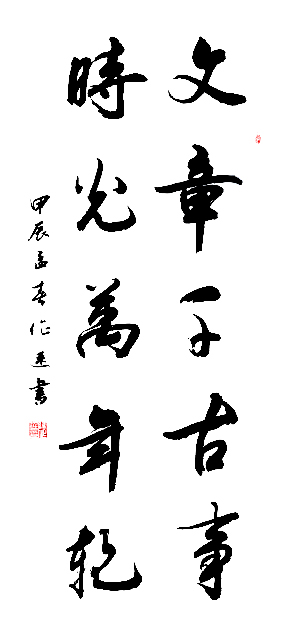 文章千古事
時光萬年軌
甲辰孟春作書